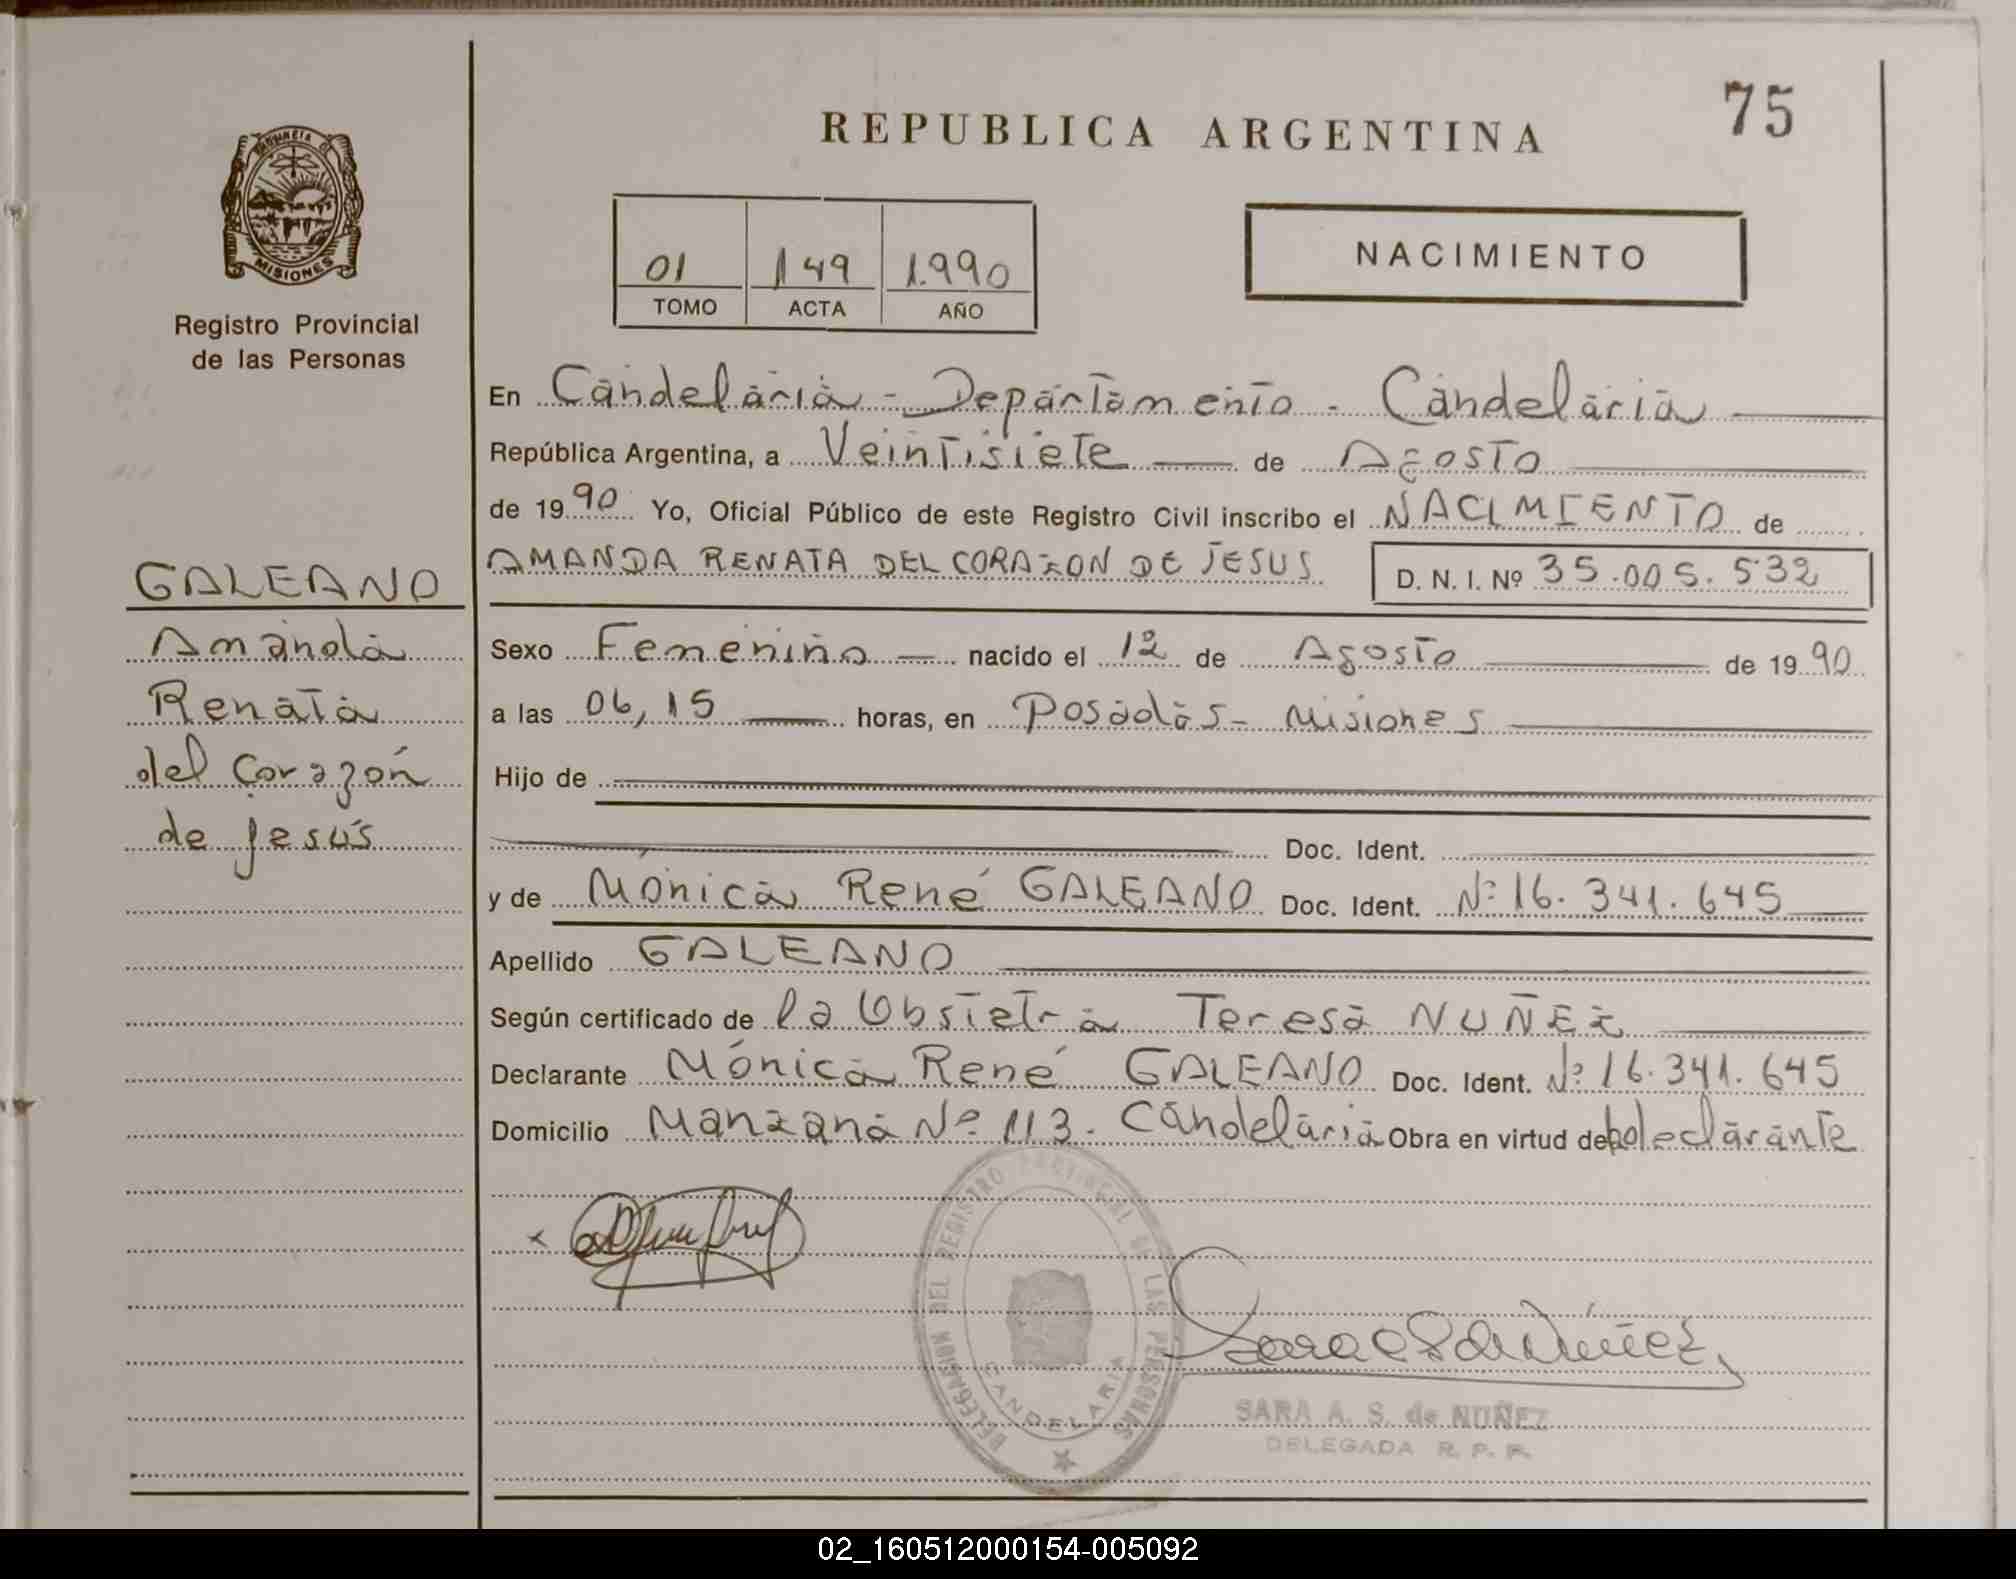 REPUBLICA ARGENTINA
75
PROVINCIA DE
MISIONES
Registro Provincial
de las Personas
01 149 1.990
TOMO ACTA AÑO
NACIMIENTO
En Candelaria - Departamento - Candelaria
República Argentina, a Veintisiete de Agosto
de 1990 Yo, Oficial Público de este Registro Civil inscribo el NACIMIENTO de
AMANDA RENATA DEL CORAZON DE JESUS D. N. I. Nº 35.005.532
GALEANO
Amanda
Renata
del Corazón
de Jesús
Sexo Femenino nacido el 12 de Agosto de 1990
a las 06,15 horas, en Posadas - Misiones
Hijo de
Doc. Ident.
y de Mónica René GALEANO Doc. Ident. Nº 16.341.645
Apellido GALEANO
Según certificado de la Obstetra Teresa NUÑEZ
Declarante Mónica René GALEANO Doc. Ident. Nº 16.341.645
Domicilio Manzana Nº 113. Candelaria Obra en virtud de declarante
x
DELEGACION DEL REGISTRO PROVINCIAL DE LAS PERSONAS
CANDELARIA
Sara S de Núñez
SARA A. S. de NUÑEZ
DELEGADA R. P. P.
02_160512000154-005092